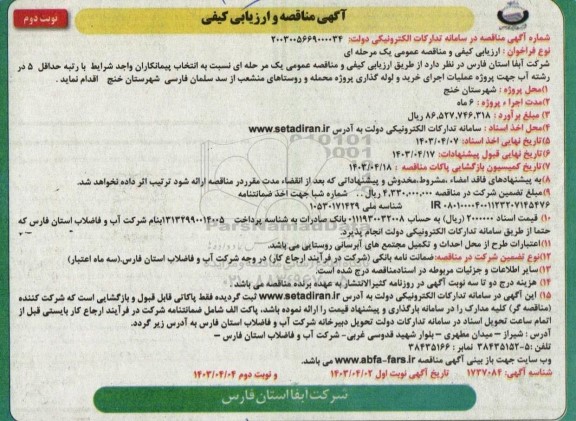 آگهی مناقصه و ارزیابی کیفی
نوبت دوم
شماره آگهی مناقصه در سامانه تدارکات الکترونیکی دولت: ۲۰۰۳۰۰۵۶۶۹۰۰۰۰۳۴
نوع فراخوان : ارزیابی کیفی و مناقصه عمومی یک مرحله ای
شرکت آبفا استان فارس در نظر دارد از طریق ارزیابی کیفی و مناقصه عمومی یک مر حله ای نسبت به انتخاب پیمانکاران واجد شرایط با رتبه حداقل ۵ در
رشته آب جهت پروژه عملیات اجرای خرید و لوله گذاری پروژه محمله و روستاهای منشعب از سد سلمان فارسی شهرستان خنج اقدام نماید .
۱)محل پروژه : شهرستان خنج
۲)مدت اجرا ء پروژه : ۶ ماه
۳) مبلغ برآورد : ۸۶,۵۲۷,۷۴۶,۳۱۸ ریال
۴)محل اخذ اسناد : سامانه تدارکات الکترونیکی دولت به آدرس www.setadiran.ir
۵)تاریخ نهایی اخذ اسناد: ۱۴۰۳/۰۴/۰۷
۶)تاریخ نهایی قبول پیشنهادات: ۱۴۰۳/۰۴/۱۷
۷)تاریخ کمیسیون بازگشایی پاکات مناقصه : ۱۴۰۳/۰۴/۱۸
۸)به پیشنهادهای فاقد امضاء ،مشروط،مخدوش و پیشنهاداتی که بعد از انقضاء مدت مقرردر مناقصه ارائه شود ترتیب اثر داده نخواهد شد.
۹)مبلغ تضمین شرکت در مناقصه ۴,۳۳۰,۰۰۰,۰۰۰ ریال .. شماره شبا جهت اخذ ضمانتنامه
IR ۰۸۰۱۰۰۰۰۴۰۰۱۱۲۳۲۰۷۱۴۵۴۷۶ شناسه ملی ۱۰۵۳۰۱۷۱۴۲۹
۱۰) قیمت اسناد ۲۰۰۰۰۰۰ (ریال) به حساب ۰۱۱۱۹۳۰۰۳۲۰۰۸ بانک صادرات به شناسه پرداخت ۱۳۱۳۲۹۹۰۰۱۴۰۰۵بنام شرکت آب و فاضلاب استان فارس که
حتما از طریق سامانه تدارکات الکترونیکی دولت انجام پذیرد.
۱۱)اعتبارات طرح از محل احداث و تکمیل مجتمع های آبرسانی روستایی می باشد.
۱۲)نوع تضمین شرکت در مناقصه:ضمانت نامه بانکی (شرکت در فرآیند ارجاع کار) در وجه شرکت آب و فاضلاب استان فارس.(سه ماه اعتبار)
۱۳)سایر اطلاعات و جزئیات مربوطه در اسنادمناقصه درج شده است.
۱۴) هزینه درج دو تا سه نوبت آگهی در روزنامه کثیرالانتشار به عهده برنده مناقصه می باشد.
۱۵) این آگهی در سامانه تدارکات الکترونیکی دولت به آدرس www.setadiran.ir ثبت گردیده فقط پاکاتی قابل قبول و بازگشایی است که شرکت کننده
(مناقصه گر) کلیه مدارک را در سامانه بارگذاری و پیشنهاد قیمت را ارائه نموده باشد، پاکت الف شامل ضمانتنامه شرکت در فرآیند ارجاع کار بایستی قبل از
اتمام ساعت تحویل اسناد در سامانه تدارکات دولت تحویل دبیرخانه شرکت آب و فاضلاب استان فارس به آدرس زیر گردد.
آدرس : شیراز – میدان مطهری – بلوار شهید قدوسی غربی- شرکت آب و فاضلاب استان فارس –
تلفن:۵-۳۸۴۳۵۱۵۲ نمابر : ۳۸۴۳۵۱۶۶
وب سایت جهت باز بینی آگهی مناقصه www.abfa-fars.ir می باشد.
شناسه آگهی: ۱۷۳۷۰۸۴ تاریخ آگهی نوبت اول ۱۴۰۳/۰۴/۰۲ و نوبت دوم ۱۴۰۳/۰۴/۰۴
شرکت آبفا استان فارس